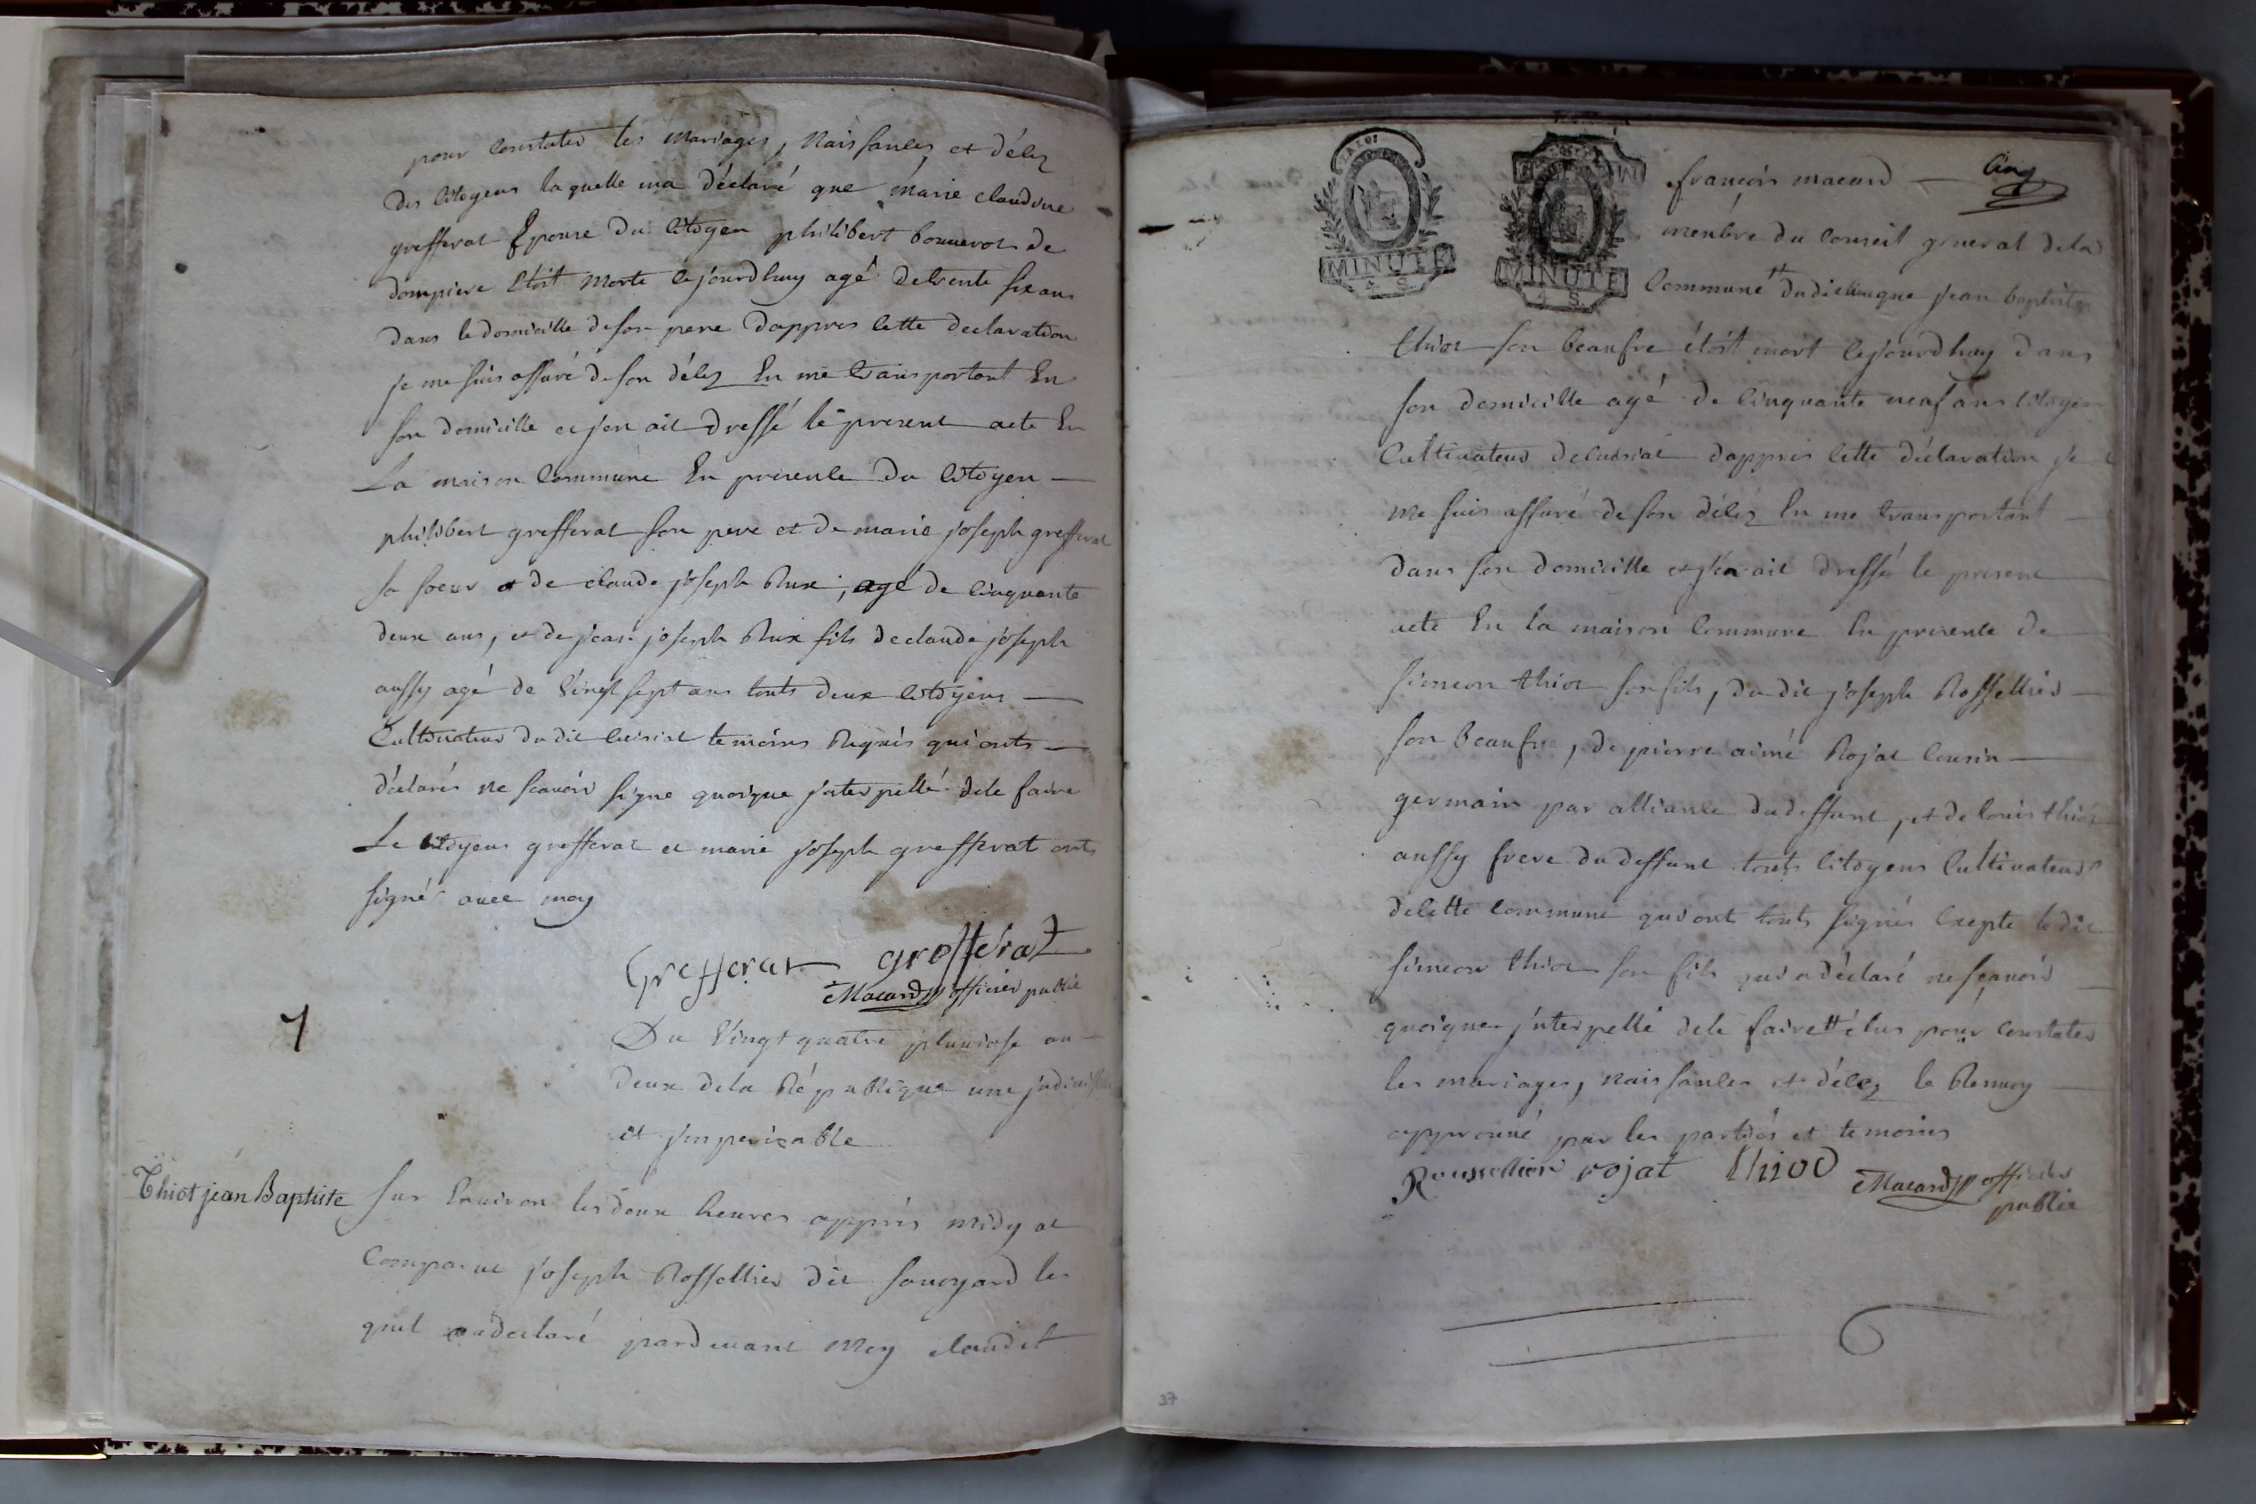 pour Constater les mariages, Naissances, et décez
des Citoyens laquelle ma déclaré que marie claudine
grefferat Epouse du Citoyen philibert bonnerot de
dompiere Etoit Morte cejourdhuy agé de trente six ans
dans le domicille de son pere dappres Cette declaration
je me suis assuré de son décez En me transportant En
son domicille et j'en ait dressé le present acte En
La maison Commune En presence du Citoyen
philibert grefferat son pere et de marie joseph grefferat
sa soeur et de claude joseph Rux, agé de Cinquante
deux ans, et de jean joseph Rux fils de claude joseph
aussy agé de Vingt sept ans touts deux Citoyens
Cultivateur du dit Cuisiat temoins Requis qui onts
déclarés ne scavoir signe quoique jnterpellé de le faire
Le citoyens grefferat et marie joseph grefferat onts
signés avec moy
Grefferat grefferat
Macard officier public
7
Du Vingt quatre pluviose an
deux de la République une jndivisible
et jmperisable
Thiot jean Baptiste
Sur Environ les deux heures apprès midy at
Comparut joseph Rossellier dit savoyard le
quel a declaré pardevant moy claude
MINUTE
4 S
MINUTE
4 S
Cinq
françois macard
membre du Conseil general de la
Commune dudit lieu que jean baptiste
thiot son beaufre étoit mort cejourdhuy dans
son domicille agé de Cinquante neuf ans Citoyen
Cultivateur de Cuisiat dappres Cette déclaration je
me suis assuré de son décéz En me transportant
dans son domicille et j'en ait dressé le present
acte En la maison Commune En presence de
simeon thiot son fils, du dit joseph Rossellier
son beaufre, de pierre aimé Rojat Cousin
germain par alliance du deffunt, et de louis thiot
aussy frere du deffunt touts Citoyens Cultivateurs
de Cette Commune qui ont touts signés Excepte le dit
simeon thiot son fils qui a déclaré ne sçavoir
quoique jnterpellé de le faire élus pour Constater
les mariages, naissances et décez le Renvoy
approuvé par les partiés et temoins
Roussellier rojat thiod Macard officier
public
37